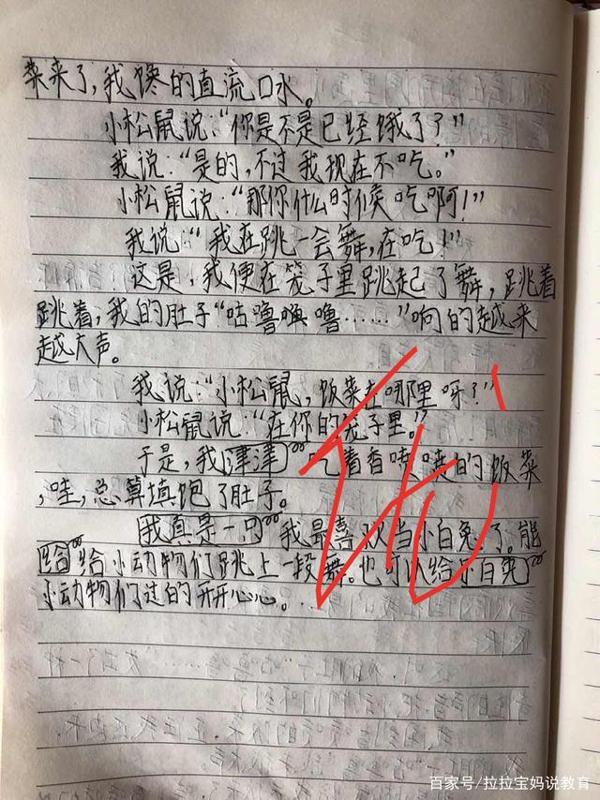 菜来了,我馋的直流口水。
小松鼠说:“你是不是已经饿了?”
我说:“是的,不过我现在不吃。”
小松鼠说:“那你什么时候吃啊!”
我说:“我在跳一会舞,在吃!”
这是,我便在笼子里跳起了舞,跳着
跳着,我的肚子“咕噜噜噜……”响的越来
越大声。
我说:“小松鼠,饭菜在哪里呀?”
小松鼠说:“在你的笼子里。”
于是,我津津 吃着香喷喷的饭菜
,哇,总算填饱了肚子。
我真是一只 我最喜欢当小白兔了。能
给给小动物们跳上一段舞。也可以给小白兔
小动物们过的开开心心。
百家号/拉拉宝妈说教育